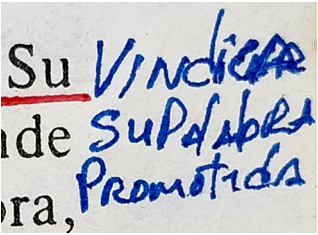 Su VINDICAR
nde SU PALABRA
ora, PROMETIDA